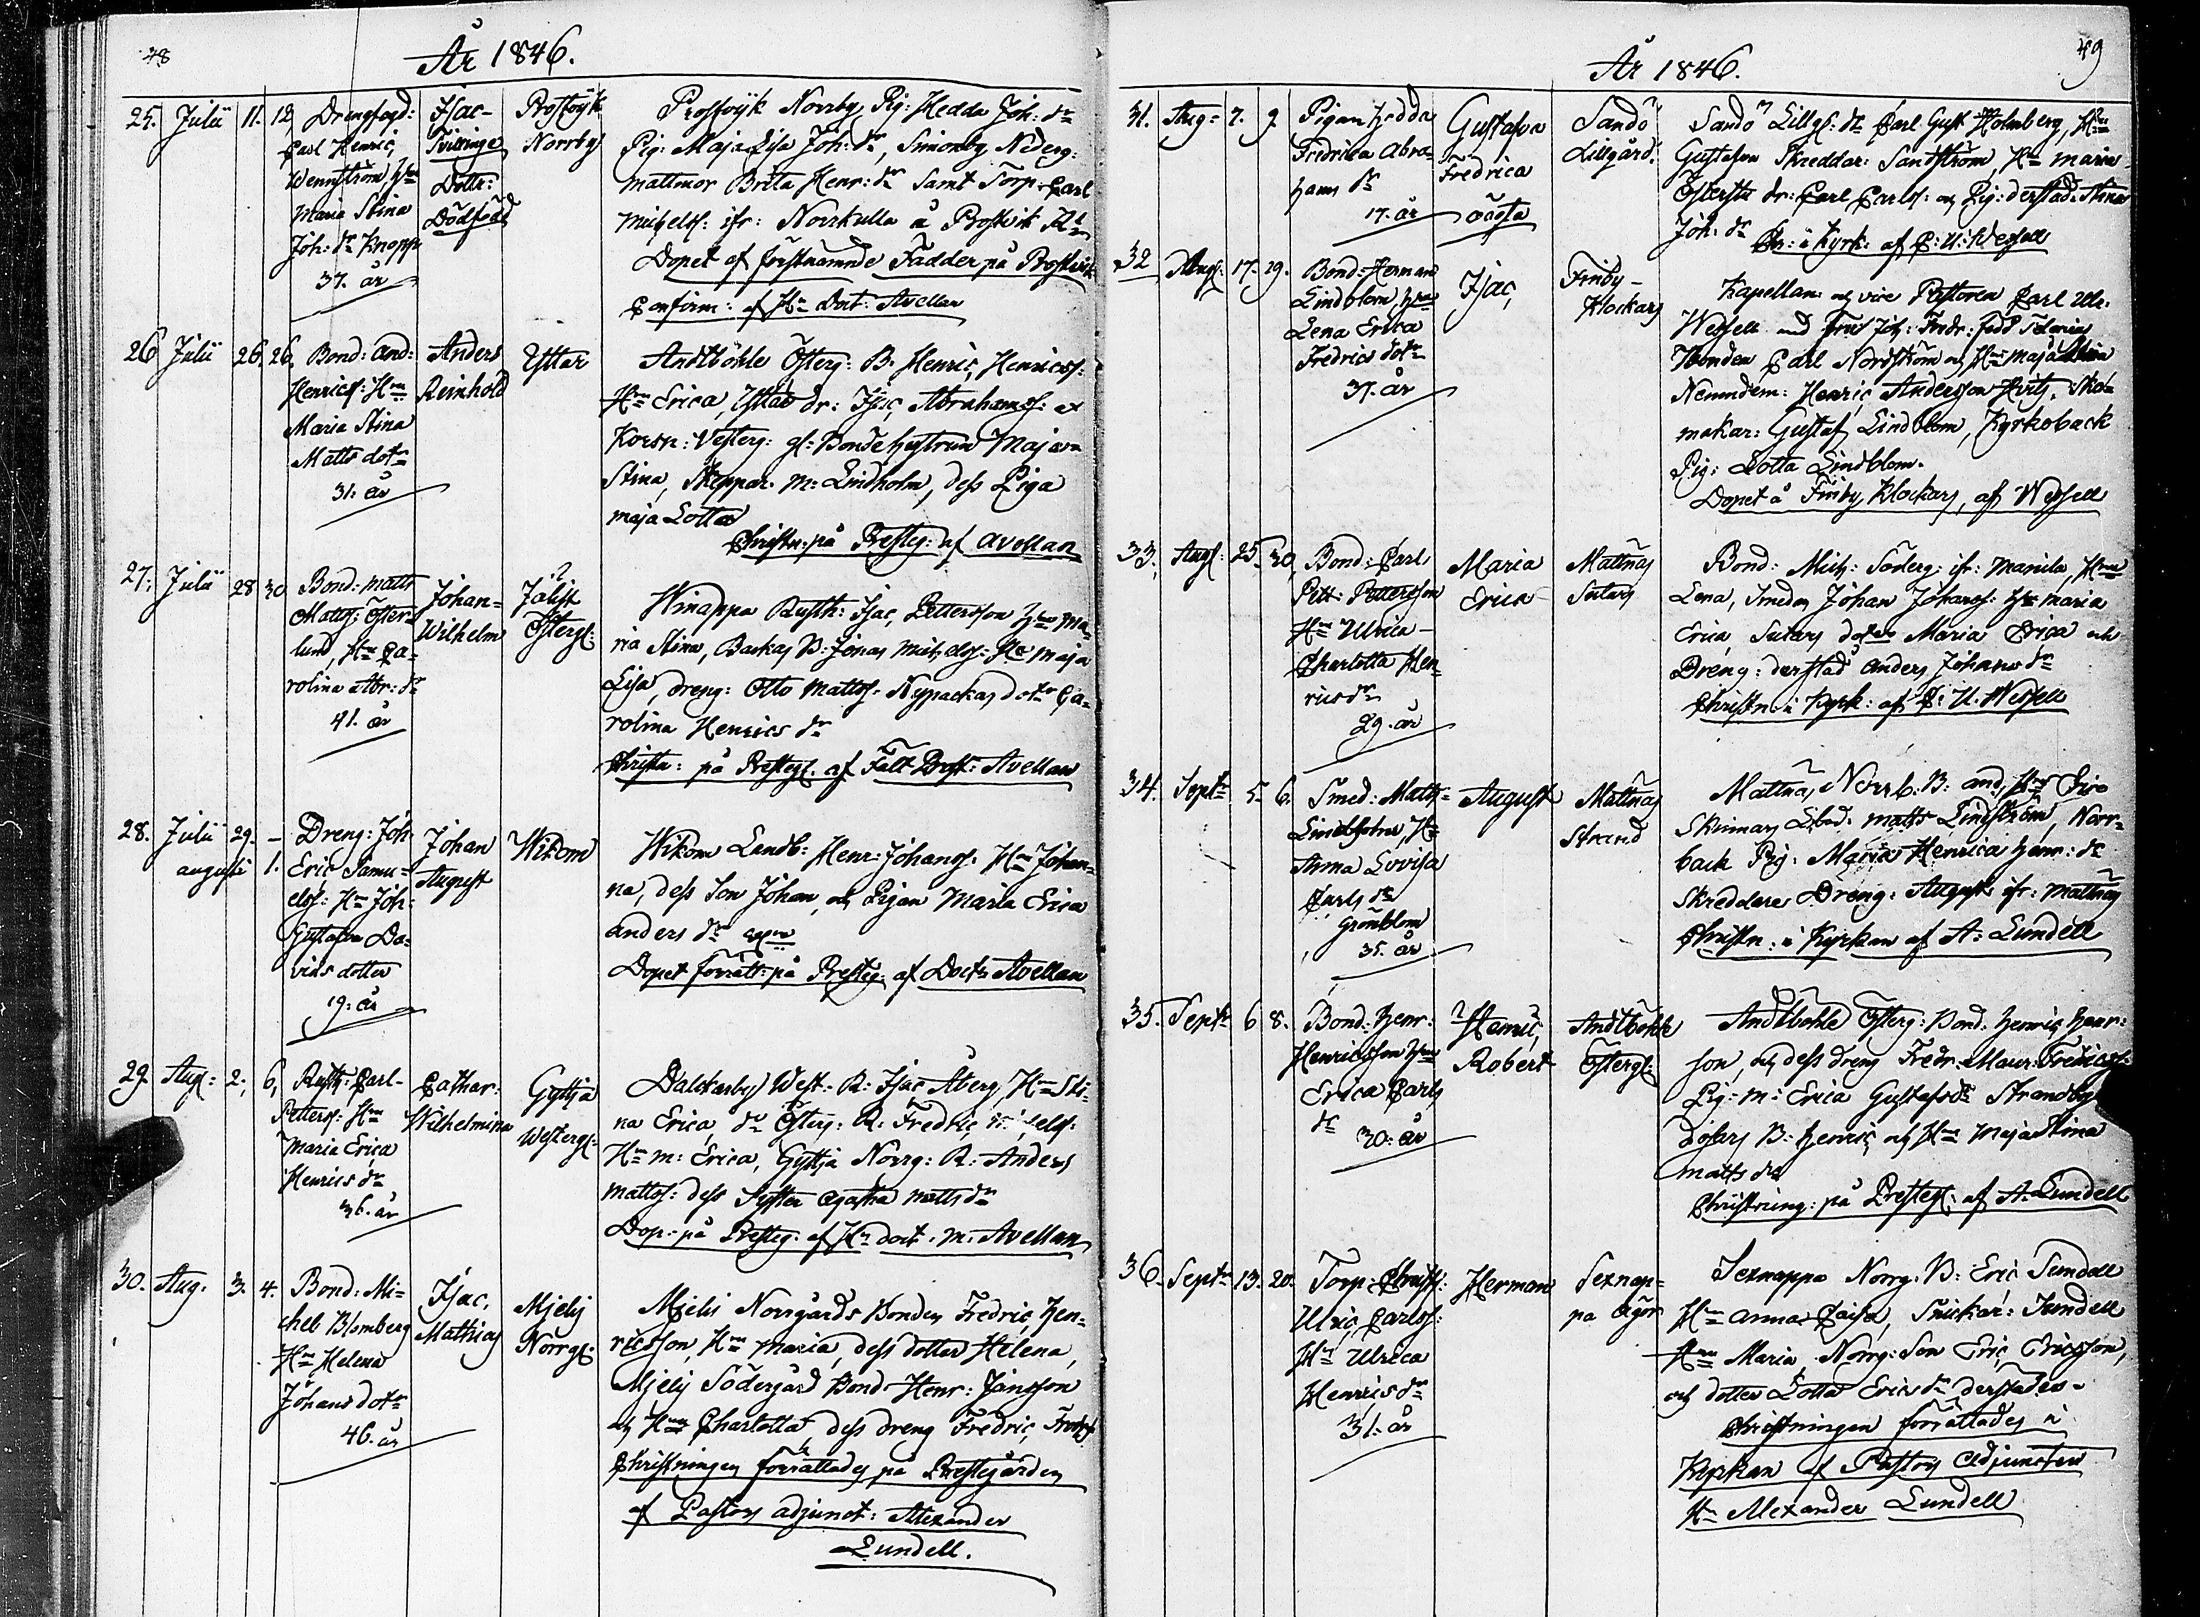 48
År 1846.
25. Julii 11. 12
Drengfogd:
Carl Henric,
Wennström, Hru
Maria Stina
Joh: dr Knopp
37. år
Isac
Tvillinge
Dottr:
Dödfödd
Prostvik
Norrby
Prostvik Norrby Pig: Hedda Joh: dr
Pig: Maja Lisa Joh: dr, Simonby
mattmor Brita Henr: dr samt Torp: Carl
Michelss: ifr: Norrkulla å Prostvik
Dopet af förstnämnde Fadder på Prostvik
Confirm: af Hr Doct: Avellan
26 Julii 26. 26.
Bond: And:
Henricss: Hru
Maria Stina
Matts dotr
31. år
Anders
Reinhold
Yttar
Andtböhle Österg: B. Henric, Henricss:
Hru Erica, Yttar dr: Isac Abrahamss: et
Korsn: Vesterg: gl: Bonde hustrun Maja
Stina, Skeppar. M: Lindholm, dess Piga
Maja Lotta
Christn: på Presteg: af Avellan
27. Julii 28 30
Bond: Matts
Mattss: Öster-
lund, Hru Ca-
rolina Abr: dr
41. år
Johan
Wilhelm
Jälist
Östergl:
Winappa Rusth: Isac Pettersson Hru Ma-
ria Stina, Backas B: Jonas Michelss: Hru Maja
Lisa, dreng: Otto Mattss: Nypackas dotr Ca-
rolina Henrics dr
Christn: på Prestegl: af Fält Prost: Avellan
28. Julii 29. –
augusti 1.
Dreng: Joh
Eric Samu-
elss: Hru Joh:
Gustafva Da-
vids dotter
19: år
Johan
August
Wikom
Wikom Landb: Henr: Johanss: Hru Johan-
na, dess Son Johan, och Pigan Maria Erica
Anders dr
Dopet förrätt: på Presteg: af Doctr Avellan
29. Aug: 2. 6,
Rusth: Carl
Petterss: Hru
Maria Erica
Henrics dr
36. år
Cathar:
Wilhelmina
Gyttja
Westergl:
Dalckarby West: R: Isac Åberg, Hru Sti-
na Erica, dr Österg: R: Fredric
Hru M: Erica, Gyttja Norrg: R: Anders
Mattss: dess Syster Agatha Matts dr
Dop: på Presteg: af Hr doct: M: Avellan
30. Aug. 3. 4.
Bond: Mi-
chel Blomberg
Hru Helena
Johans dotr
46. år
Isac,
Mathias
Mjelis
Norrgl:
Mjelis Norrgårds Bonden Fredric, Hen-
ricsson, Hru Maria, dess dotter Helena,
Mjelis Södergård Bond: Henr: Jansson
och Hru Charlotta, dess dreng Fredric
Christningen förrättades på Prestegården
af Pastors adjunct: Alexander
Lundell.
49
År 1846.
31. Aug: 7. 9
Pigan Hedda
Fredrica Abra-
hams dr
17. år
Gustafva
Fredrica
oägta
Sandö
Lillgård.
Sandö Lillgl: dr Carl Gust: Holmberg, Hru
Gustafva Skreddar: Sandström, Hru Maria
dr: Carl Carlss: och Pig: derstäd: Stina
Joh: dr Chr: i Kyrk: af C: U: Wessell
32 Aug: 17. 19.
Bond: Herman
Lindblom, Hru
Lena Erica
Fredrics dotr
37. år
Isac,
Finby
Klockars
Kapellan och vice Pastoren Carl Ulr.
Wessell med Fru Joh: Fredr: född
Bonden Carl Nordström och Hru Maja Stina
Nemndem: Henric Andersson Sko-
makar: Gustaf Lindblom, Kyrkoback
Pig: Lotta Lindblom.
Dopet å Finby, Klockars, af Wessell
33. Aug: 25. 30,
Bond: Carl
Pett: Pettersson
Hru Ulrica
Charlotta Hen-
rics dr
29. år
Maria
Erica
Mattnäs
Sutars
Bond: Mich: Söderg: ifr: Manila, Hru
Lena, Smeden Johan Johanss: Hru Maria
Erica, Sutars dotter Maria Erica och
Dreng: derstäd Anders Johans dr
Christn: i Kyrk: af C: U. Wessell
34. Septr 5. 6.
Smed: Matts
Lindholm, Hru
Anna Lovisa
Carls dr
Grönblom
35. år
August
Mattnäs
Strand
Mattnäs Norrb: B: And: Hru
Skinnars Lbd: Matts Lindström, Norr-
back Pig: Maria Henrica Henr: dr
Skreddare Dreng: August ifr: Mattnäs
Christn: i Kyrkan af A: Lundell
35. Septr 6 8.
Bond: Henr:
Henricsson Hru
Erica Carls
dr
30: år
Henric,
Robert
Andtböhle
Östergl:
Andtböhle Österg: Bond: Henric Henr:
son, och dess dreng Fredr: Maur: Fredricss:
Pig: M: Erica Gustafs dr Strandby
B: Henric och Hru Maja Stina
Matts dr
Christning: på Prestegl: af A: Lundell
36. Septr 13. 20.
Torp: Christ:
Ulric, Carlss:
Hru Ulrica
Henrics dr
31. år
Herman
Sexnap-
pa ägor
Sexnappa Norrg: B: Eric Sundell
Hru Anna Caisa, Snickar: Sundell
Hru Maria, Norrg: Son Eric Ericsson,
och dotter Lotta Erics dr derstädes.
Christningen förrättades i
Kyrkan af Pastors Adjuncten
Hr Alexander Lundell